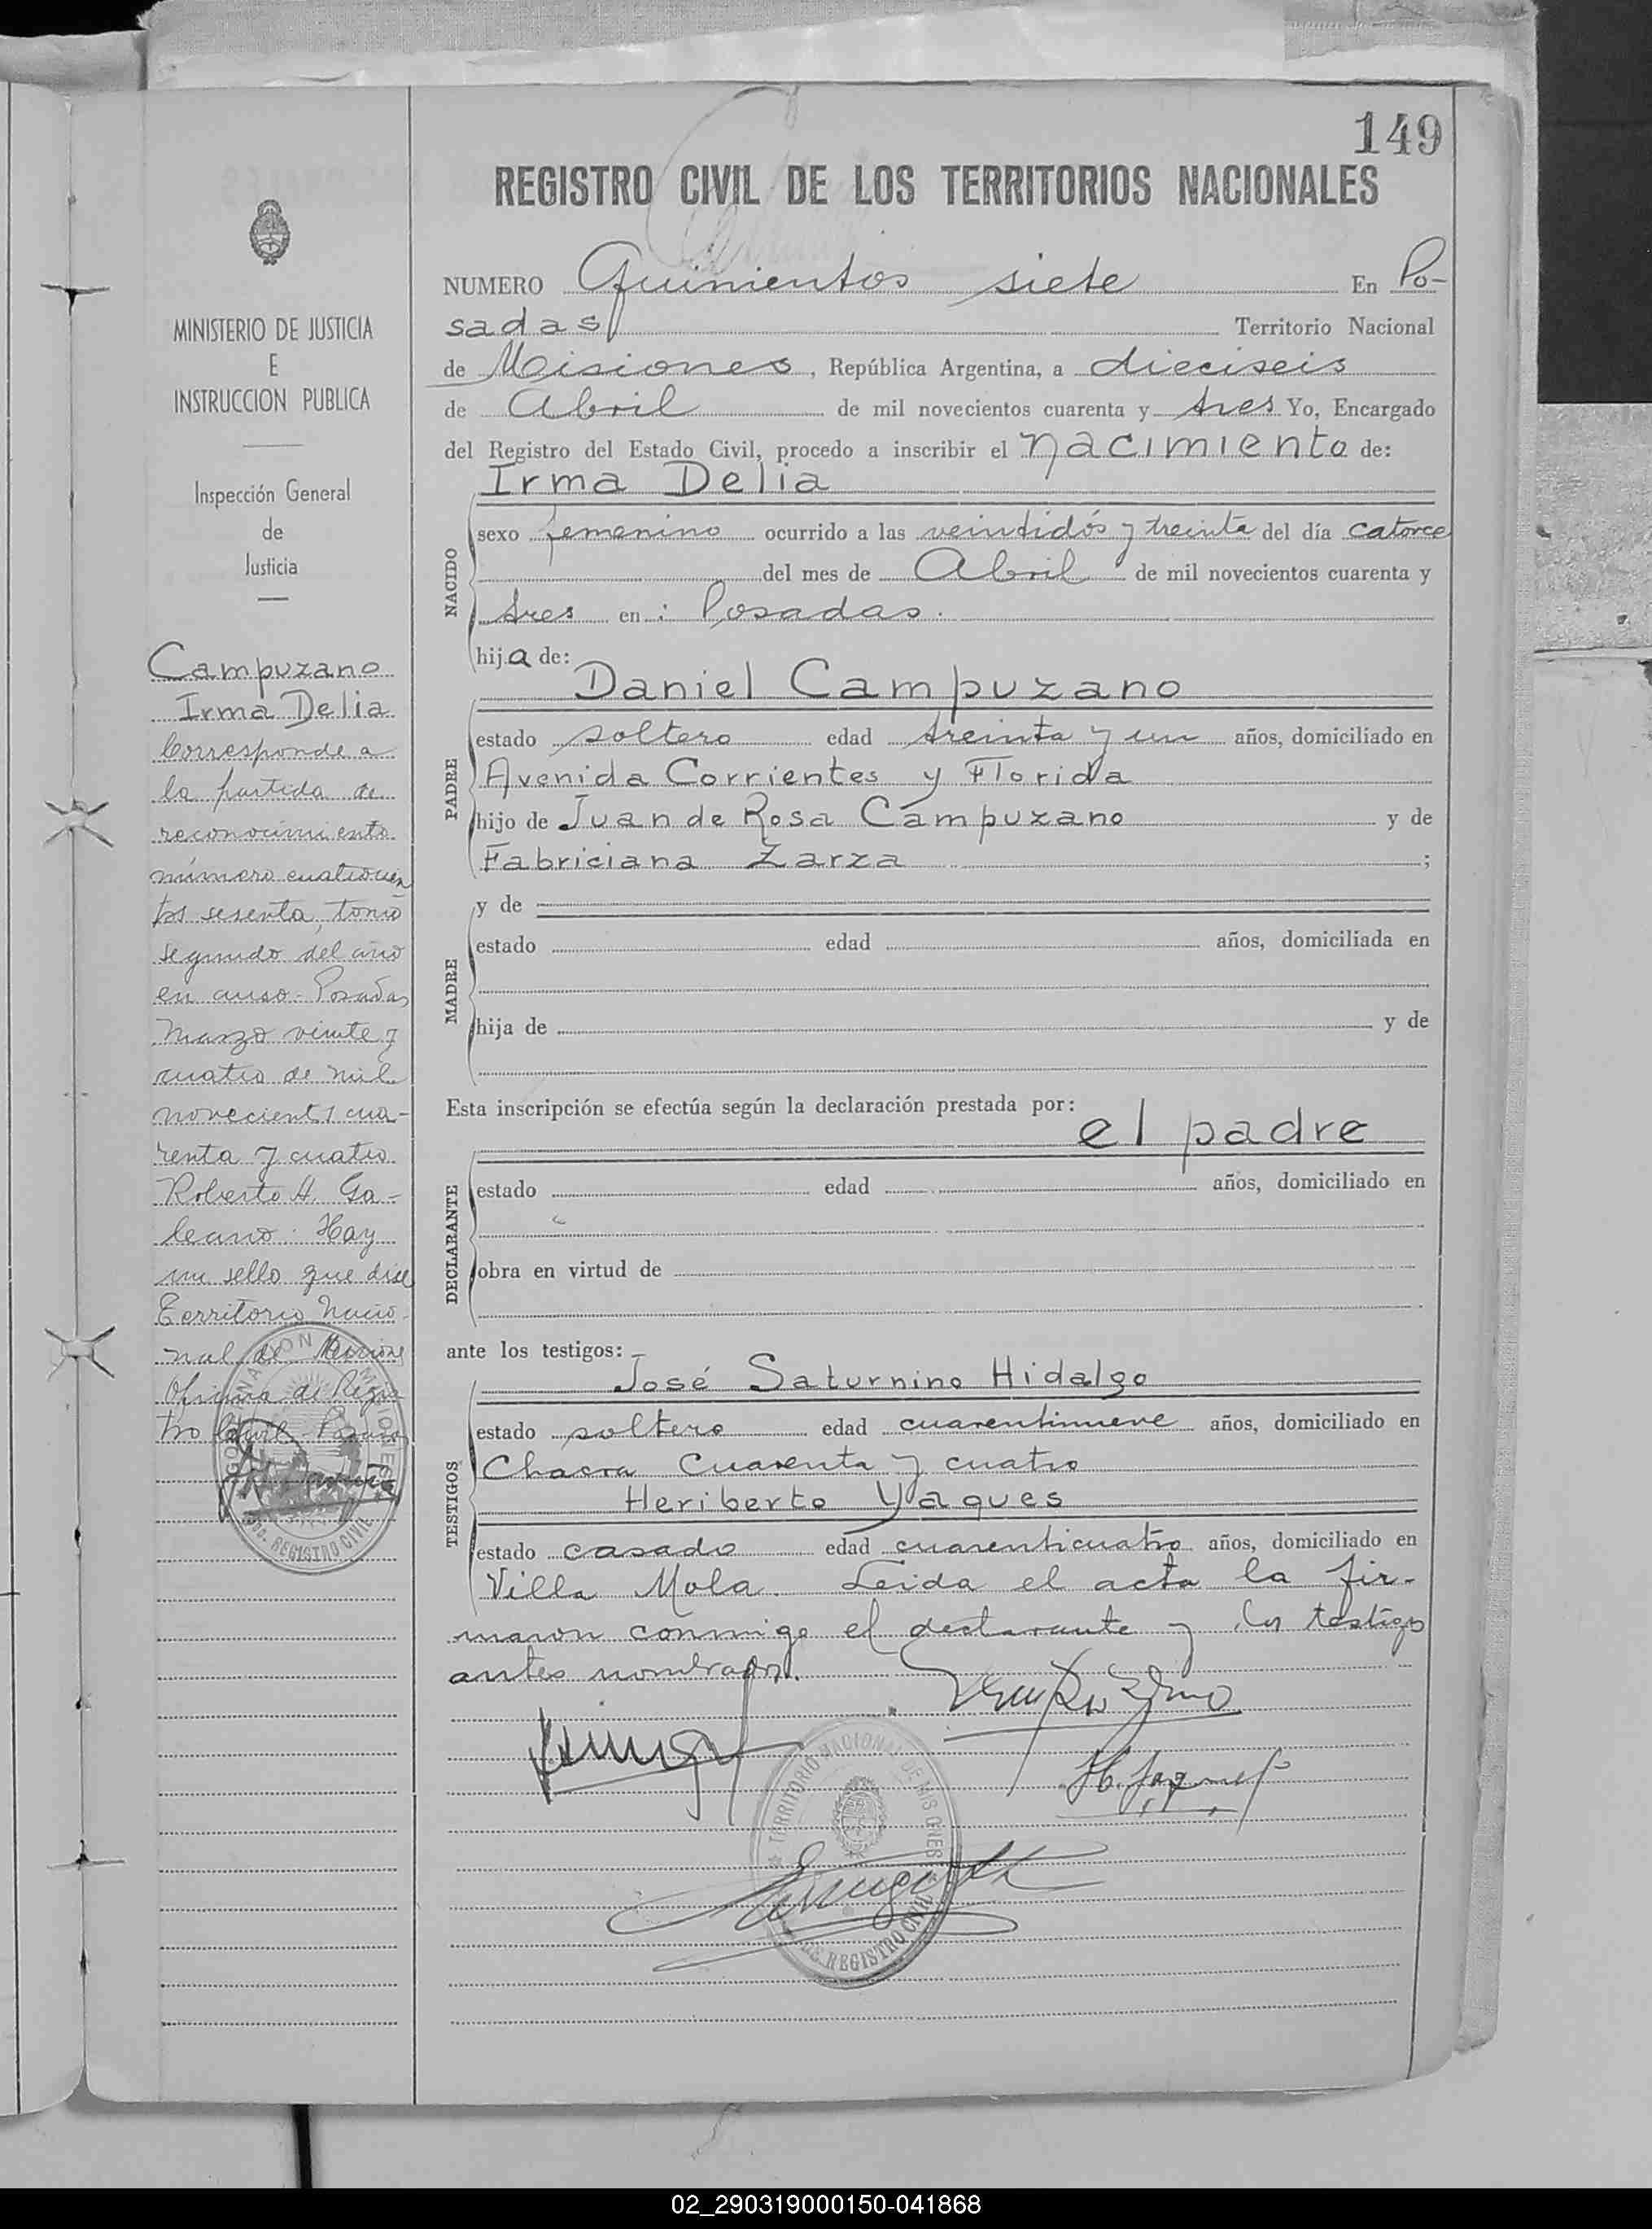 149
REGISTRO CIVIL DE LOS TERRITORIOS NACIONALES
MINISTERIO DE JUSTICIA
E
INSTRUCCION PUBLICA
Inspección General
de
Justicia
Campuzano
Irma Delia
Corresponde a
la partida de
reconocimiento
número cuatrocien
tos sesenta, tomo
segundo del año
en curso. Posadas,
Marzo veinte y
cuatro de mil
novecientos cua-
renta y cuatro
Roberto A. Ga-
leano. Hay
un sello que dice
Territorio Nacio-
nal de Misiones
Oficina de Regis
tro Civil - Posadas
GOBERNACION MISIONES
REGISTRO CIVIL
NUMERO Quinientos siete En Po-
sadas Territorio Nacional
de Misiones, República Argentina, a dieciseis
de Abril de mil novecientos cuarenta y tres Yo, Encargado
del Registro del Estado Civil, procedo a inscribir el nacimiento de:
Irma Delia
NACIDO
sexo femenino ocurrido a las veintidós y treinta del día catorce
del mes de Abril de mil novecientos cuarenta y
tres en: Posadas.
hija de:
Daniel Campuzano
PADRE
estado soltero edad treinta y un años, domiciliado en
Avenida Corrientes y Florida
hijo de Juan de Rosa Campuzano y de
Fabriciana Zarza ;
y de
MADRE
estado edad años, domiciliada en
hija de y de
Esta inscripción se efectúa según la declaración prestada por:
el padre
DECLARANTE
estado edad años, domiciliado en
obra en virtud de
ante los testigos:
José Saturnino Hidalgo
TESTIGOS
estado soltero edad cuarentinueve años, domiciliado en
Chacra Cuarenta y cuatro
Heriberto Yaques
estado casado edad cuarenticuatro años, domiciliado en
Villa Mola. Leida el acta la fir-
maron conmigo el declarante y los testigos
antes nombrados.
H. Jaques
TERRITORIO NACIONAL DE MISIONES
DE REGISTRO CIVIL
02_290319000150-041868